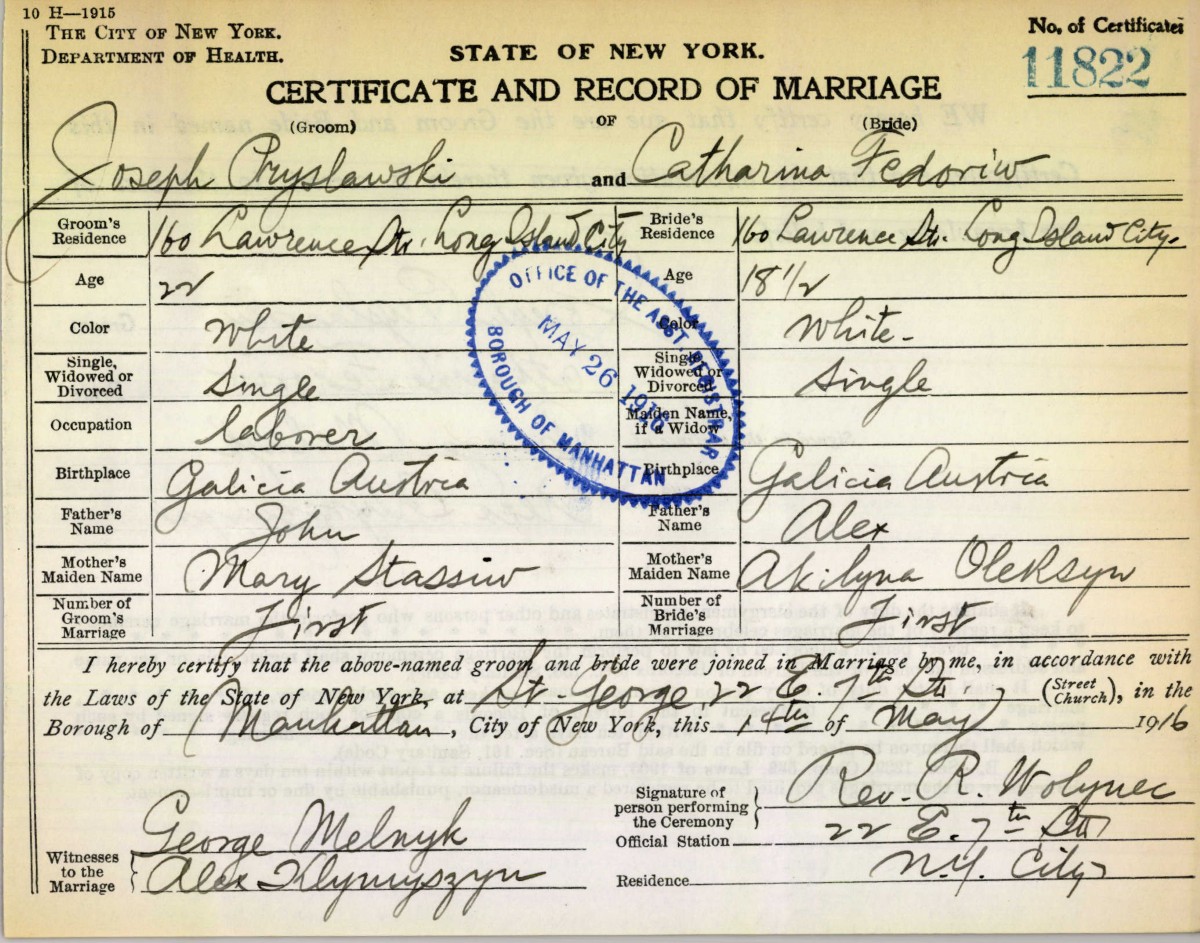 10 H—1915
THE CITY OF NEW YORK.
DEPARTMENT OF HEALTH.
STATE OF NEW YORK.
CERTIFICATE AND RECORD OF MARRIAGE
No. of Certificate
11822
(Groom) OF (Bride)
Joseph Pryslawski and Catharina Fedoriw
Groom's Residence 160 Lawrence Str. Long Island City Bride's Residence 160 Lawrence Str. Long Island City.
Age 22 Age 18 1/2
Color White Color White-
Single, Widowed or Divorced Single Single, Widowed or Divorced Single
Occupation laborer Maiden Name, if a Widow
Birthplace Galicia Austria Birthplace Galicia Austria
Father's Name John Father's Name Alex
Mother's Maiden Name Mary Stassiw Mother's Maiden Name Akilyna Oleksyn
Number of Groom's Marriage First Number of Bride's Marriage First
OFFICE OF THE ASST. REGISTRAR
MAY 26 1916
BOROUGH OF MANHATTAN
I hereby certify that the above-named groom and bride were joined in Marriage by me, in accordance with
the Laws of the State of New York, at St. George, 22 E. 7th Str (Street Church), in the
Borough of Manhattan, City of New York, this 14th of May 1916
Signature of person performing the Ceremony Rev. R. Wolynec
Official Station 22 E. 7th Str
Residence N.Y. City
Witnesses to the Marriage George Melnyk
Alex Klymyszyn